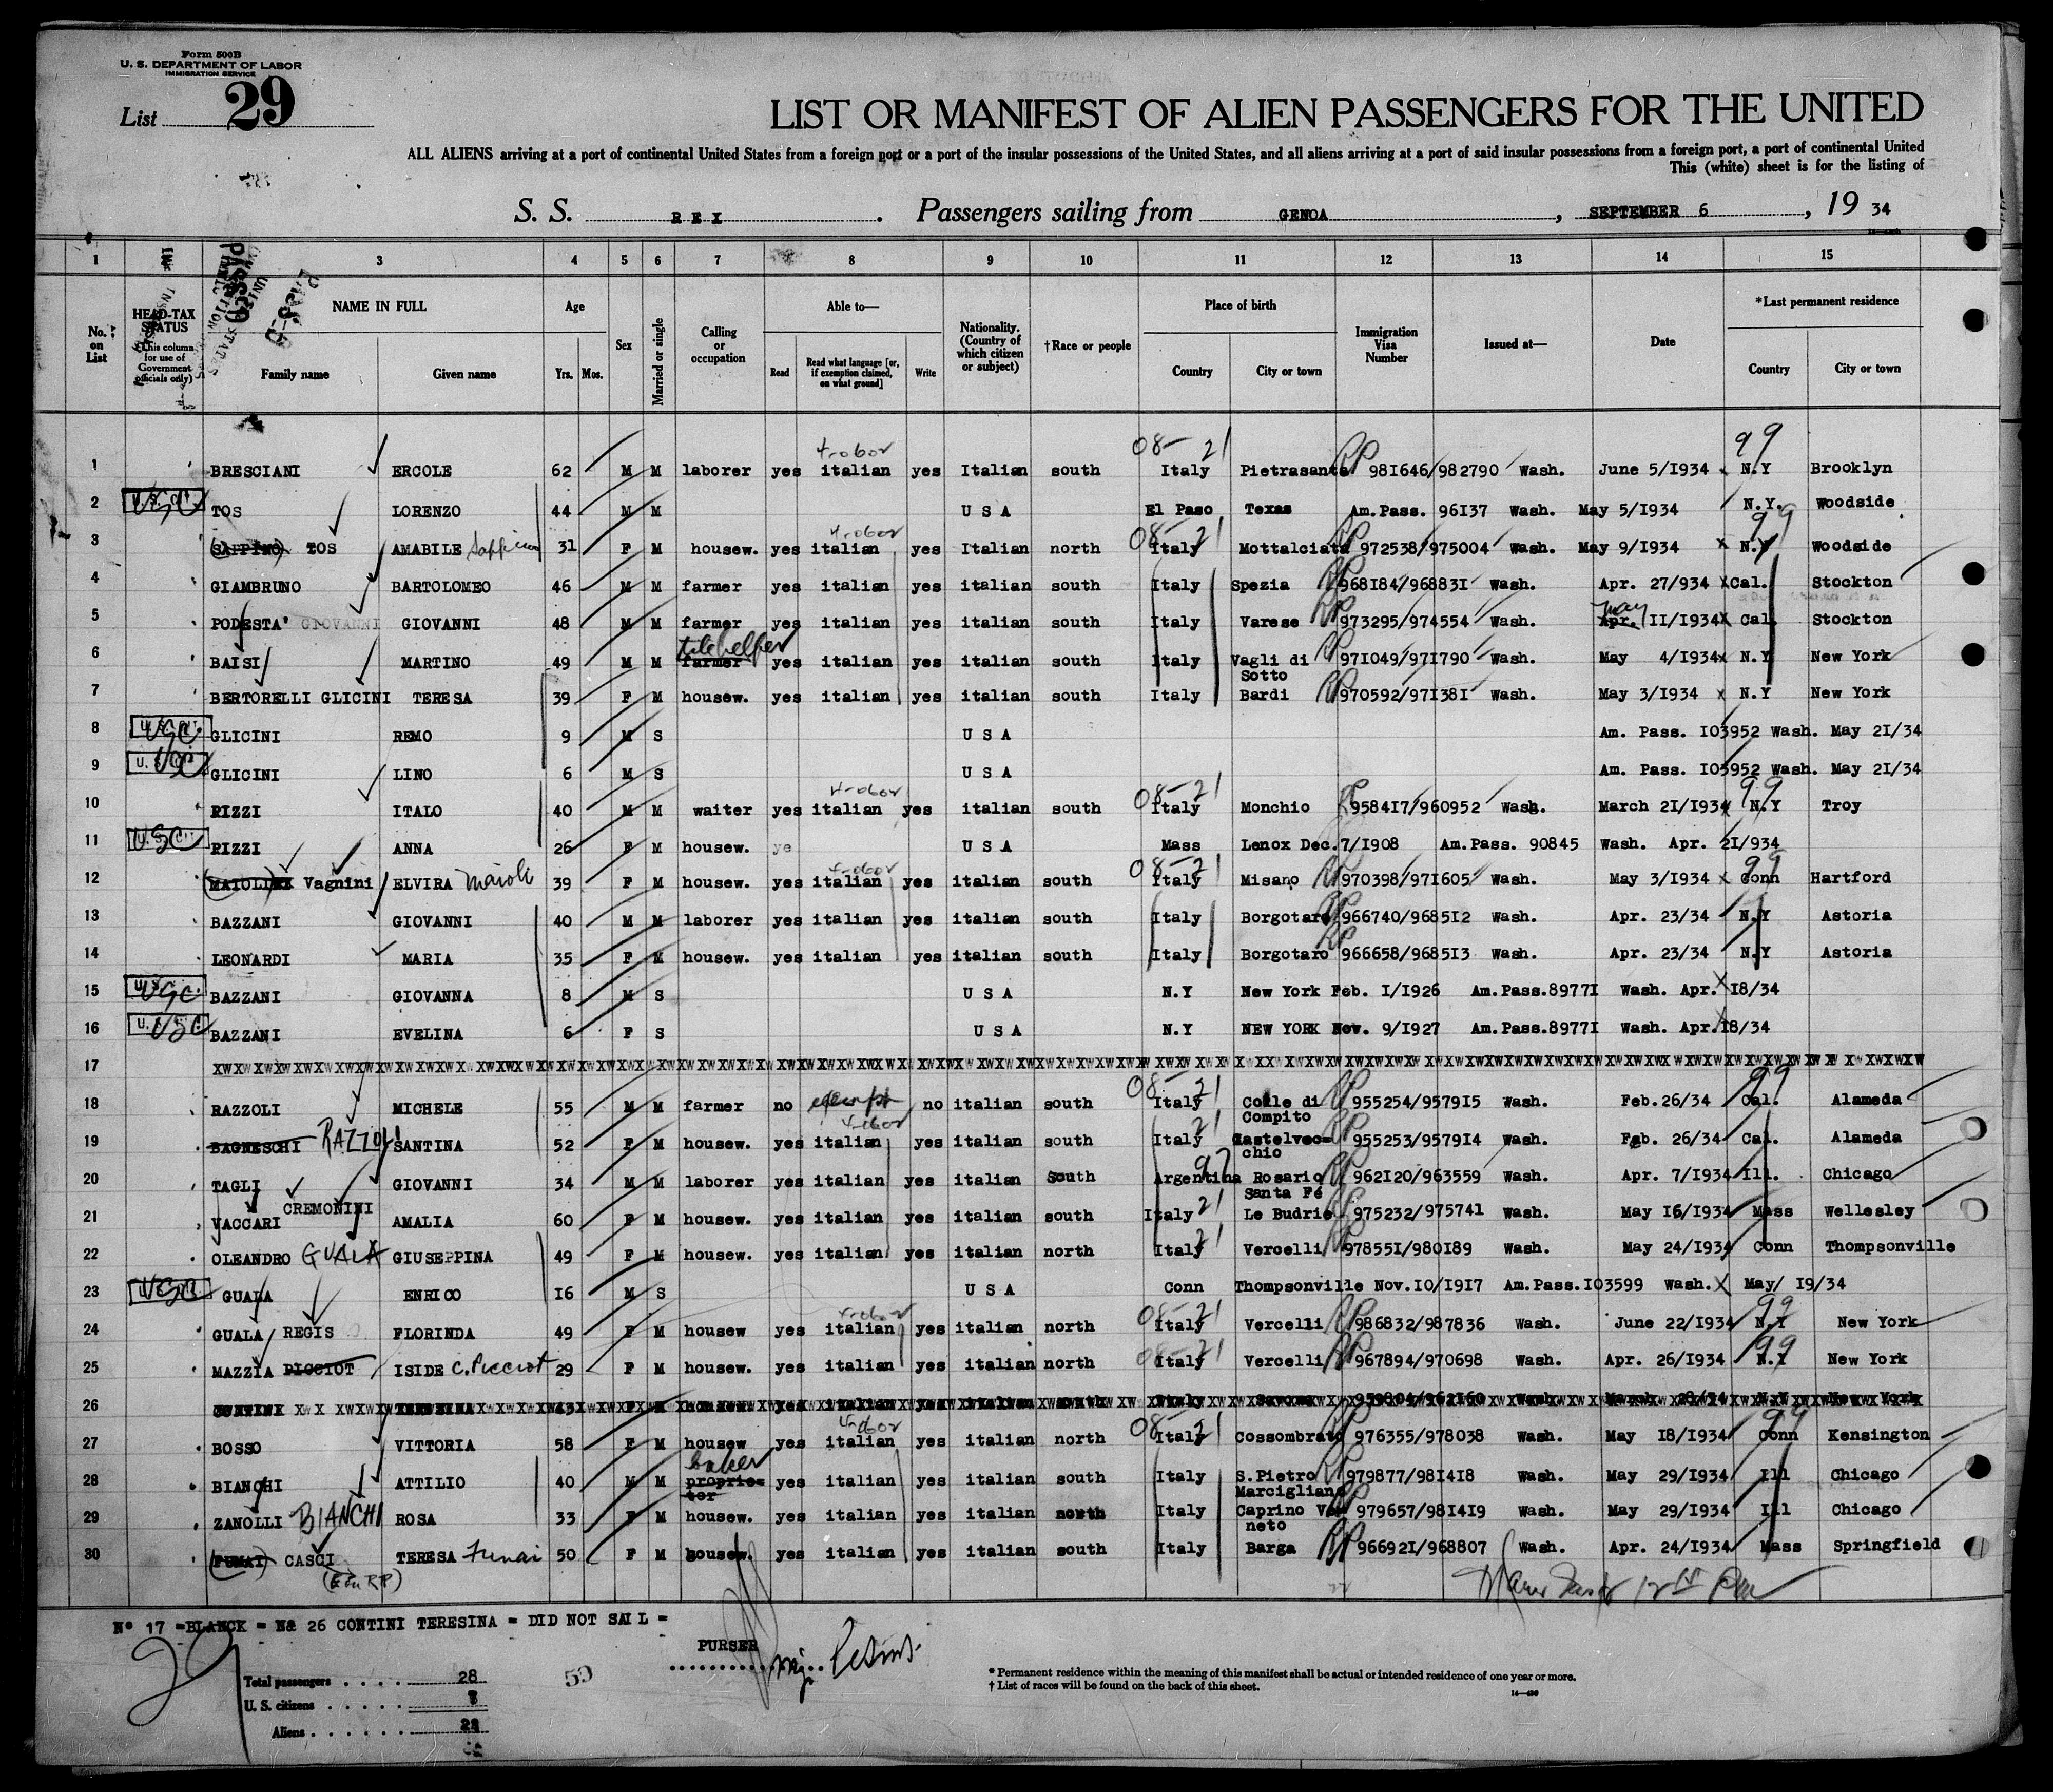 Form 500B
U. S. DEPARTMENT OF LABOR
IMMIGRATION SERVICE
List 29
LIST OR MANIFEST OF ALIEN PASSENGERS FOR THE UNITED
ALL ALIENS arriving at a port of continental United States from a foreign port or a port of the insular possessions of the United States, and all aliens arriving at a port of said insular possessions from a foreign port, a port of continental United
This (white) sheet is for the listing of
S. S. REX . Passengers sailing from GENOA , SEPTEMBER 6 , 19 34
1 3 4 5 6 7 8 9 10 11 12 13 14 15
No. on List
HEAD-TAX STATUS (This column for use of Government officials only)
NAME IN FULL Family name Given name
Age Yrs. Mos.
Sex
Married or single
Calling or occupation
Able to— Read Read what language [or, if exemption claimed, on what ground] Write
Nationality. (Country of which citizen or subject)
†Race or people
Place of birth Country City or town
Immigration Visa Number
Issued at—
Date
*Last permanent residence Country City or town
08- 21 99
1 BRESCIANI ERCOLE 62 M M laborer yes italian yes Italian south Italy Pietrasanta RP 981646/982790 Wash. June 5/1934 N.Y Brooklyn
2 USC TOS LORENZO 44 M M U S A El Paso Texas Am.Pass. 96137 Wash. May 5/1934 N.Y. Woodside
3 (SAPPINO) TOS AMABILE Sappino 31 F M housew. yes italian yes Italian north Italy Mottalciata RP 972538/975004 Wash. May 9/1934 N.Y Woodside
4 GIAMBRUNO BARTOLOMEO 46 M M farmer yes italian yes italian south Italy Spezia RP 968184/968831 Wash. Apr. 27/934 Cal. Stockton
5 PODESTA' GIOVANNI GIOVANNI 48 M M farmer yes italian yes italian south Italy Varese RP 973295/974554 Wash. Apr. may 11/1934 Cal. Stockton
6 BAISI MARTINO 49 M M farmer tile helper yes italian yes italian south Italy Vagli di Sotto RP 971049/971790 Wash. May 4/1934 N.Y New York
7 BERTORELLI GLICINI TERESA 39 F M housew. yes italian yes italian south Italy Bardi RP 970592/971381 Wash. May 3/1934 N.Y New York
8 USC GLICINI REMO 9 M S U S A Am. Pass. 103952 Wash. May 21/34
9 USC GLICINI LINO 6 M S U S A Am. Pass. 103952 Wash. May 21/34
10 RIZZI ITALO 40 M M waiter yes italian yes italian south Italy Monchio RP 958417/960952 Wash. March 21/1934 N.Y Troy
11 USC RIZZI ANNA 26 F M housew. ye U S A Mass Lenox Dec.7/1908 Am.Pass. 90845 Wash. Apr. 21/934
12 (MAIOLI) Vagnini ELVIRA Maioli 39 F M housew. yes italian yes italian south Italy Misano RP 970398/971605 Wash. May 3/1934 Conn Hartford
13 BAZZANI GIOVANNI 40 M M laborer yes italian yes italian south Italy Borgotaro RP 966740/968512 Wash. Apr. 23/34 N.Y Astoria
14 LEONARDI MARIA 35 F M housew. yes italian yes italian south Italy Borgotaro RP 966658/968513 Wash. Apr. 23/34 N.Y Astoria
15 USC BAZZANI GIOVANNA 8 M S U S A N.Y New York Feb. 1/1926 Am.Pass.89771 Wash. Apr. 18/34
16 USC BAZZANI EVELINA 6 F S U S A N.Y NEW YORK Nov. 9/1927 Am.Pass.89771 Wash. Apr.18/34
17
18 RAZZOLI MICHELE 55 M M farmer no exempt no italian south Italy Colle di Compito RP 955254/957915 Wash. Feb.26/34 Cal. Alameda
19 BAGNESCHI RAZZOLI SANTINA 52 F M housew. yes italian yes italian south Italy Castelvecchio RP 955253/957914 Wash. Feb. 26/34 Cal. Alameda
20 TAGLI GIOVANNI 34 M M laborer yes italian yes italian South Argentina Rosario Santa Fé RP 962120/963559 Wash. Apr. 7/1934 Ill. Chicago
21 VACCARI CREMONINI AMALIA 60 F M housew. yes italian yes italian south Italy Le Budrie 975232/975741 Wash. May 16/1934 Mass Wellesley
22 OLEANDRO GUALA GIUSEPPINA 49 F M housew. yes italian yes italian north Italy Vercelli RP 978551/980189 Wash. May 24/1934 Conn Thompsonville
23 USC GUALA ENRICO 16 M S U S A Conn Thompsonville Nov.10/1917 Am.Pass.103599 Wash. May/ 19/34
24 GUALA/ REGIS FLORINDA 49 F M housew yes italian yes italian north Italy Vercelli RP 986832/987836 Wash. June 22/1934 N.Y New York
25 MAZZIA PICCIOT ISIDE C. Picciot 29 F M housew. yes italian yes italian north Italy Vercelli RP 967894/970698 Wash. Apr. 26/1934 N.Y New York
26 CONTINI TERESINA
27 BOSSO VITTORIA 58 F M housew yes italian yes italian north Italy Cossombrato RP 976355/978038 Wash. May 18/1934 Conn Kensington
28 BIANCHI ATTILIO 40 M M proprietor baker yes italian yes italian south Italy S.Pietro Marcigliano RP 979877/981418 Wash. May 29/1934 Ill Chicago
29 ZANOLLI BIANCHI ROSA 33 F M housew. yes italian yes italian north Italy Caprino Veneto RP 979657/981419 Wash. May 29/1934 Ill Chicago
30 (FUNAI) CASCI TERESA Funai 50 F M housew. yes italian yes italian south Italy Barga RP 966921/968807 Wash. Apr. 24/1934 Mass Springfield
N° 17 =BLANCK = N& 26 CONTINI TERESINA = DID NOT SAIL =
29
PURSER
Total passengers . . . . 28
U. S. citizens . . . . . 7
Aliens . . . . . . 21
59
*Permanent residence within the meaning of this manifest shall be actual or intended residence of one year or more.
† List of races will be found on the back of this sheet.